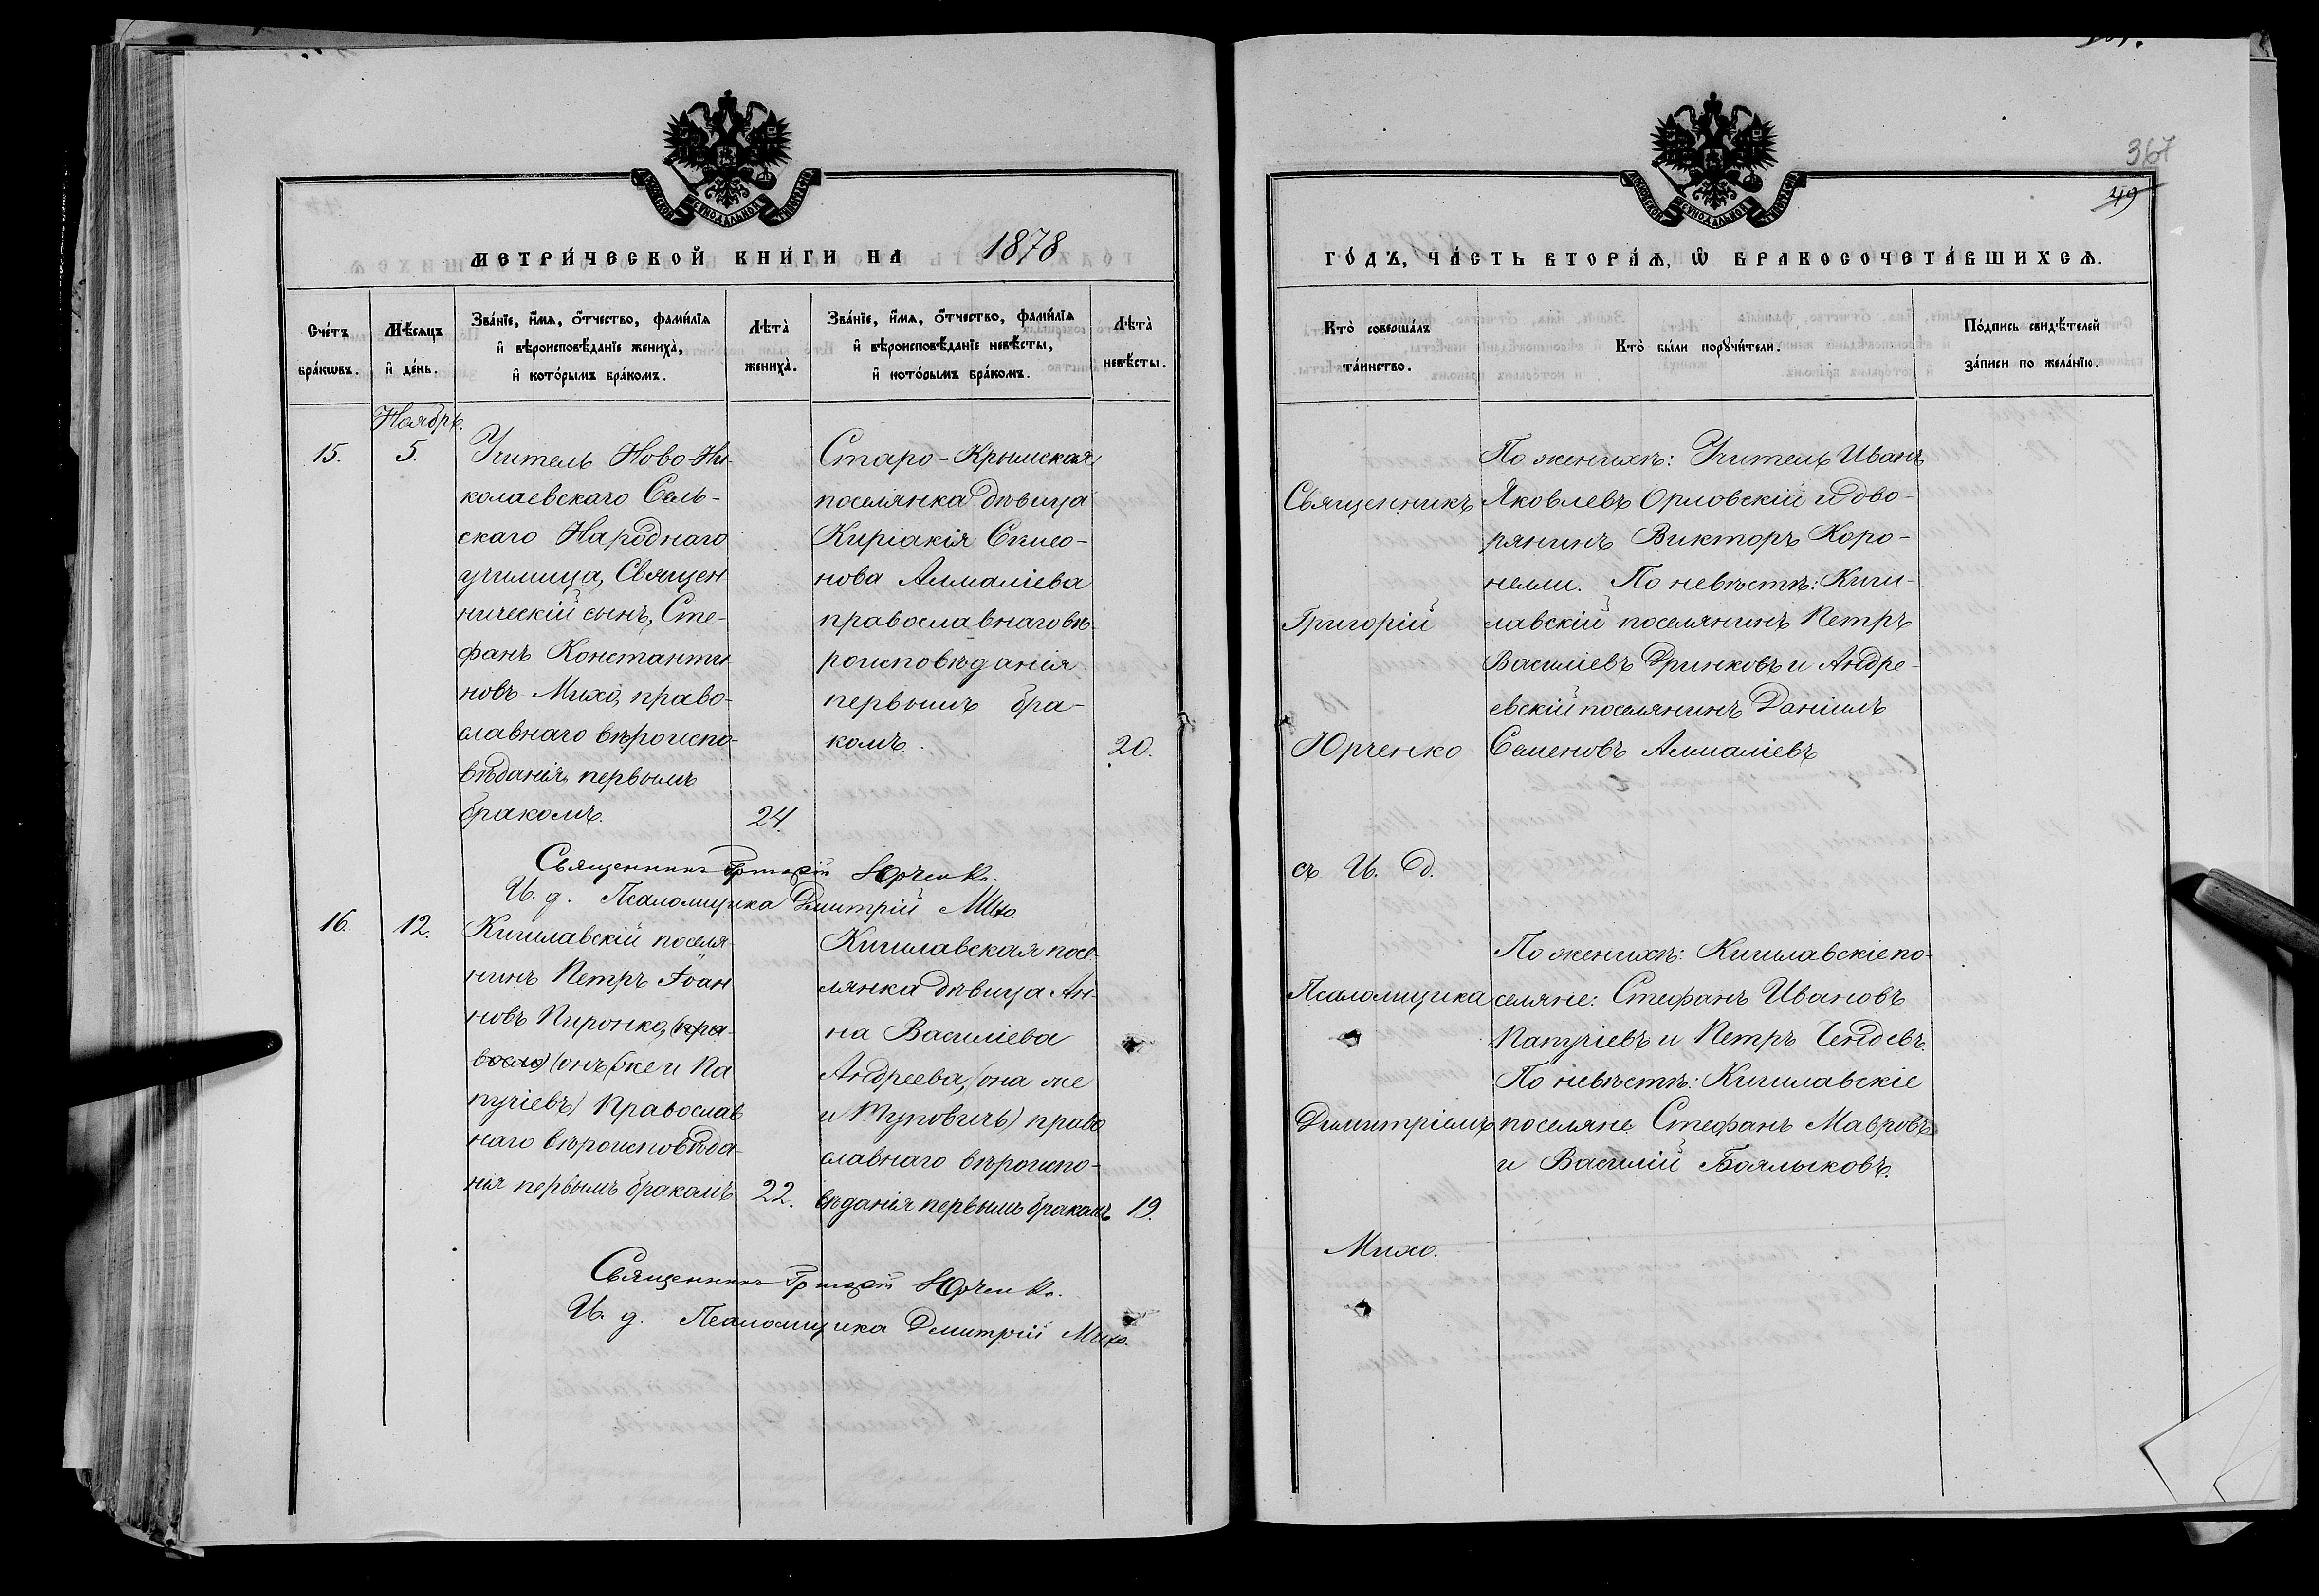 367
49
МОСКОВСКОЙ СѴНОДАЛЬНОЙ ТИПОГРАФІИ
МЕТРИ́ЧЕСКОЙ КНИ́ГИ НА 1878
Сче́тъ бра́кѡвъ.
Мѣ́сяцъ и҆ де́нь.
Зва́нїе, и҆́мѧ, ѻ҆́тчество, фами́лїѧ
и҆ вѣроисповѣ́данїе жениха̀,
и҆ кото́рымъ бра́комъ.
Лѣта̀ жениха̀.
Зва́нїе, и҆́мѧ, ѻ҆́тчество, фами́лїѧ
и҆ вѣроисповѣ́данїе невѣ́сты,
и҆ кото́рымъ бра́комъ.
Лѣта̀ невѣ́сты.
Ноябрь.
15.
5.
Учитель Ново-Ни-
колаевскаго Сель-
скаго Народнаго
училища, Священ
ническій сынъ, Сте-
фанъ Константи
новъ Михо, право-
славнаго вѣроиспо-
вѣданія, первымъ
бракомъ.
24.
Старо-Крымская
поселянка дѣвица
Киріакія Симео-
нова Алмаліева
православнаго вѣ-
роисповѣданія
первымъ бра-
комъ.
20.
Священникъ Григорій Юрченко.
И. д. Псаломщика Дмитрій Михо.
16.
12.
Кишлавскій поселя-
нинъ Петръ Іоан
новъ Пиронко, (пра-
восла) (онъ же и Па
пучіевъ) Православ
наго вѣроисповѣда-
нія первымъ бракомъ
22.
Кишлавская посе-
лянка дѣвица Ан-
на Василіева
Андреева, (она же
и Муповичъ) право
славнаго вѣроиспо-
вѣданія первымъ бракомъ
19.
Священникъ Григорій Юрченко.
И. д. Псаломщика Дмитрій Михо.
МОСКОВСКОЙ СѴНОДАЛЬНОЙ ТИПОГРАФІИ
ГО́ДЪ, ЧА́СТЬ ВТОРА́Ѧ, Ѡ҆ БРАКОСОЧЕТА́ВШИХСѦ.
Кто̀ соверша́лъ
та́инство.
Кто̀ бы́ли порꙋчи́тели.
По́дпись свидѣ́телей
за́писи по жела́нїю.
Священникъ
Григорій
Юрченко
съ И. Д.
Псаломщика
Димитріемъ
Михо.
По женихѣ: Учитель Иванъ
Яковлевъ Орловскій и дво-
рянинъ Викторъ Коро-
нелли. По невѣстѣ: Киш-
лавскій поселянинъ Петръ
Василіевъ Дринковъ и Андре-
евскій поселянинъ Даніилъ
Семеновъ Алмаліевъ
По женихѣ: Кишлавскіе по-
селяне: Стефанъ Ивановъ
Папучіевъ и Петръ Чендоевъ.
По невѣстѣ: Кишлавскіе
поселяне Стефанъ Мавровъ
и Василій Боялыковъ.